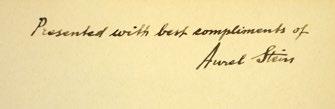 Presented with best compliments of
Aurel Stein